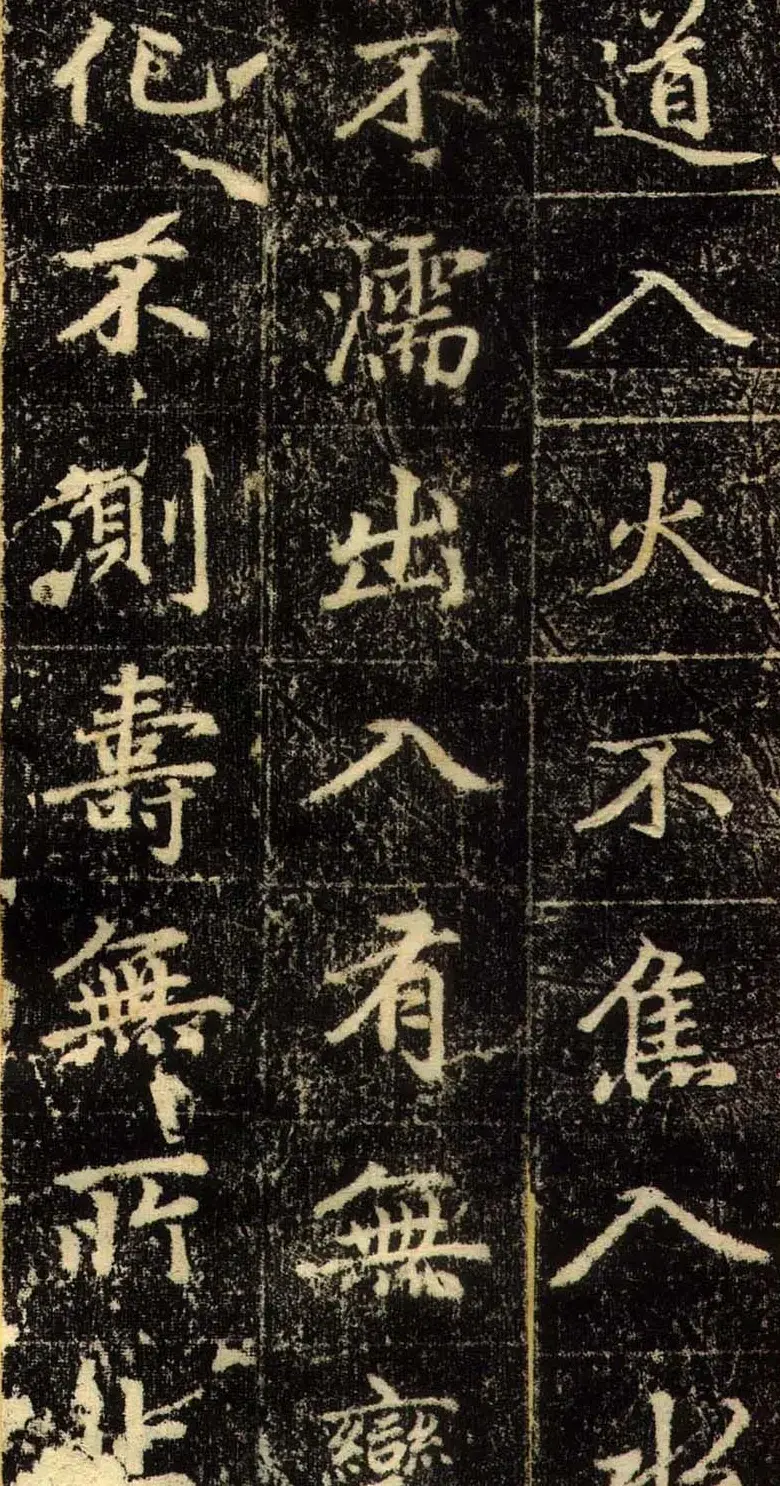 道入火不焦入水
不濡出入有無變
化不測壽無所